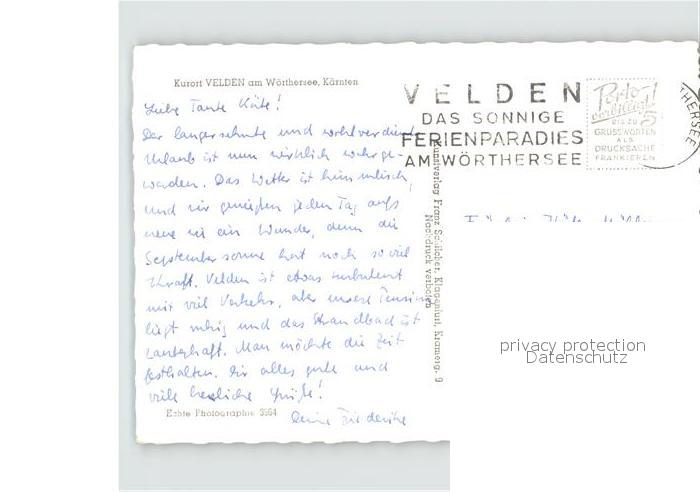 Kurort VELDEN am Wörthersee, Kärnten
Liebe Tante Käte!
Der langersehnte und wohlverdiente
Urlaub ist nun wirklich wahr ge-
worden. Das Wetter ist himmlisch,
und wir genießen jeden Tag aufs
neue wie ein Wunder, denn die
Septembersonne hat noch so viel
Kraft. Velden ist etwas turbulent
mit viel Verkehr, aber unsere Pension
liegt ruhig und das Strandbad ist
zauberhaft. Man möchte die Zeit
festhalten. Dir alles gute und
viele herzliche Grüße!
Deine Friederike
Echte Photographie 3964
Kunstverlag Franz Schilcher, Klagenfurt, Kramerg. 9
Nachdruck verboten
VELDEN
DAS SONNIGE
FERIENPARADIES
AM WÖRTHERSEE
Porto
verbilligt!
BIS ZU 5
GRUSSWORTEN
ALS
DRUCKSACHE
FRANKIEREN
THERSEE
privacy protection
Datenschutz